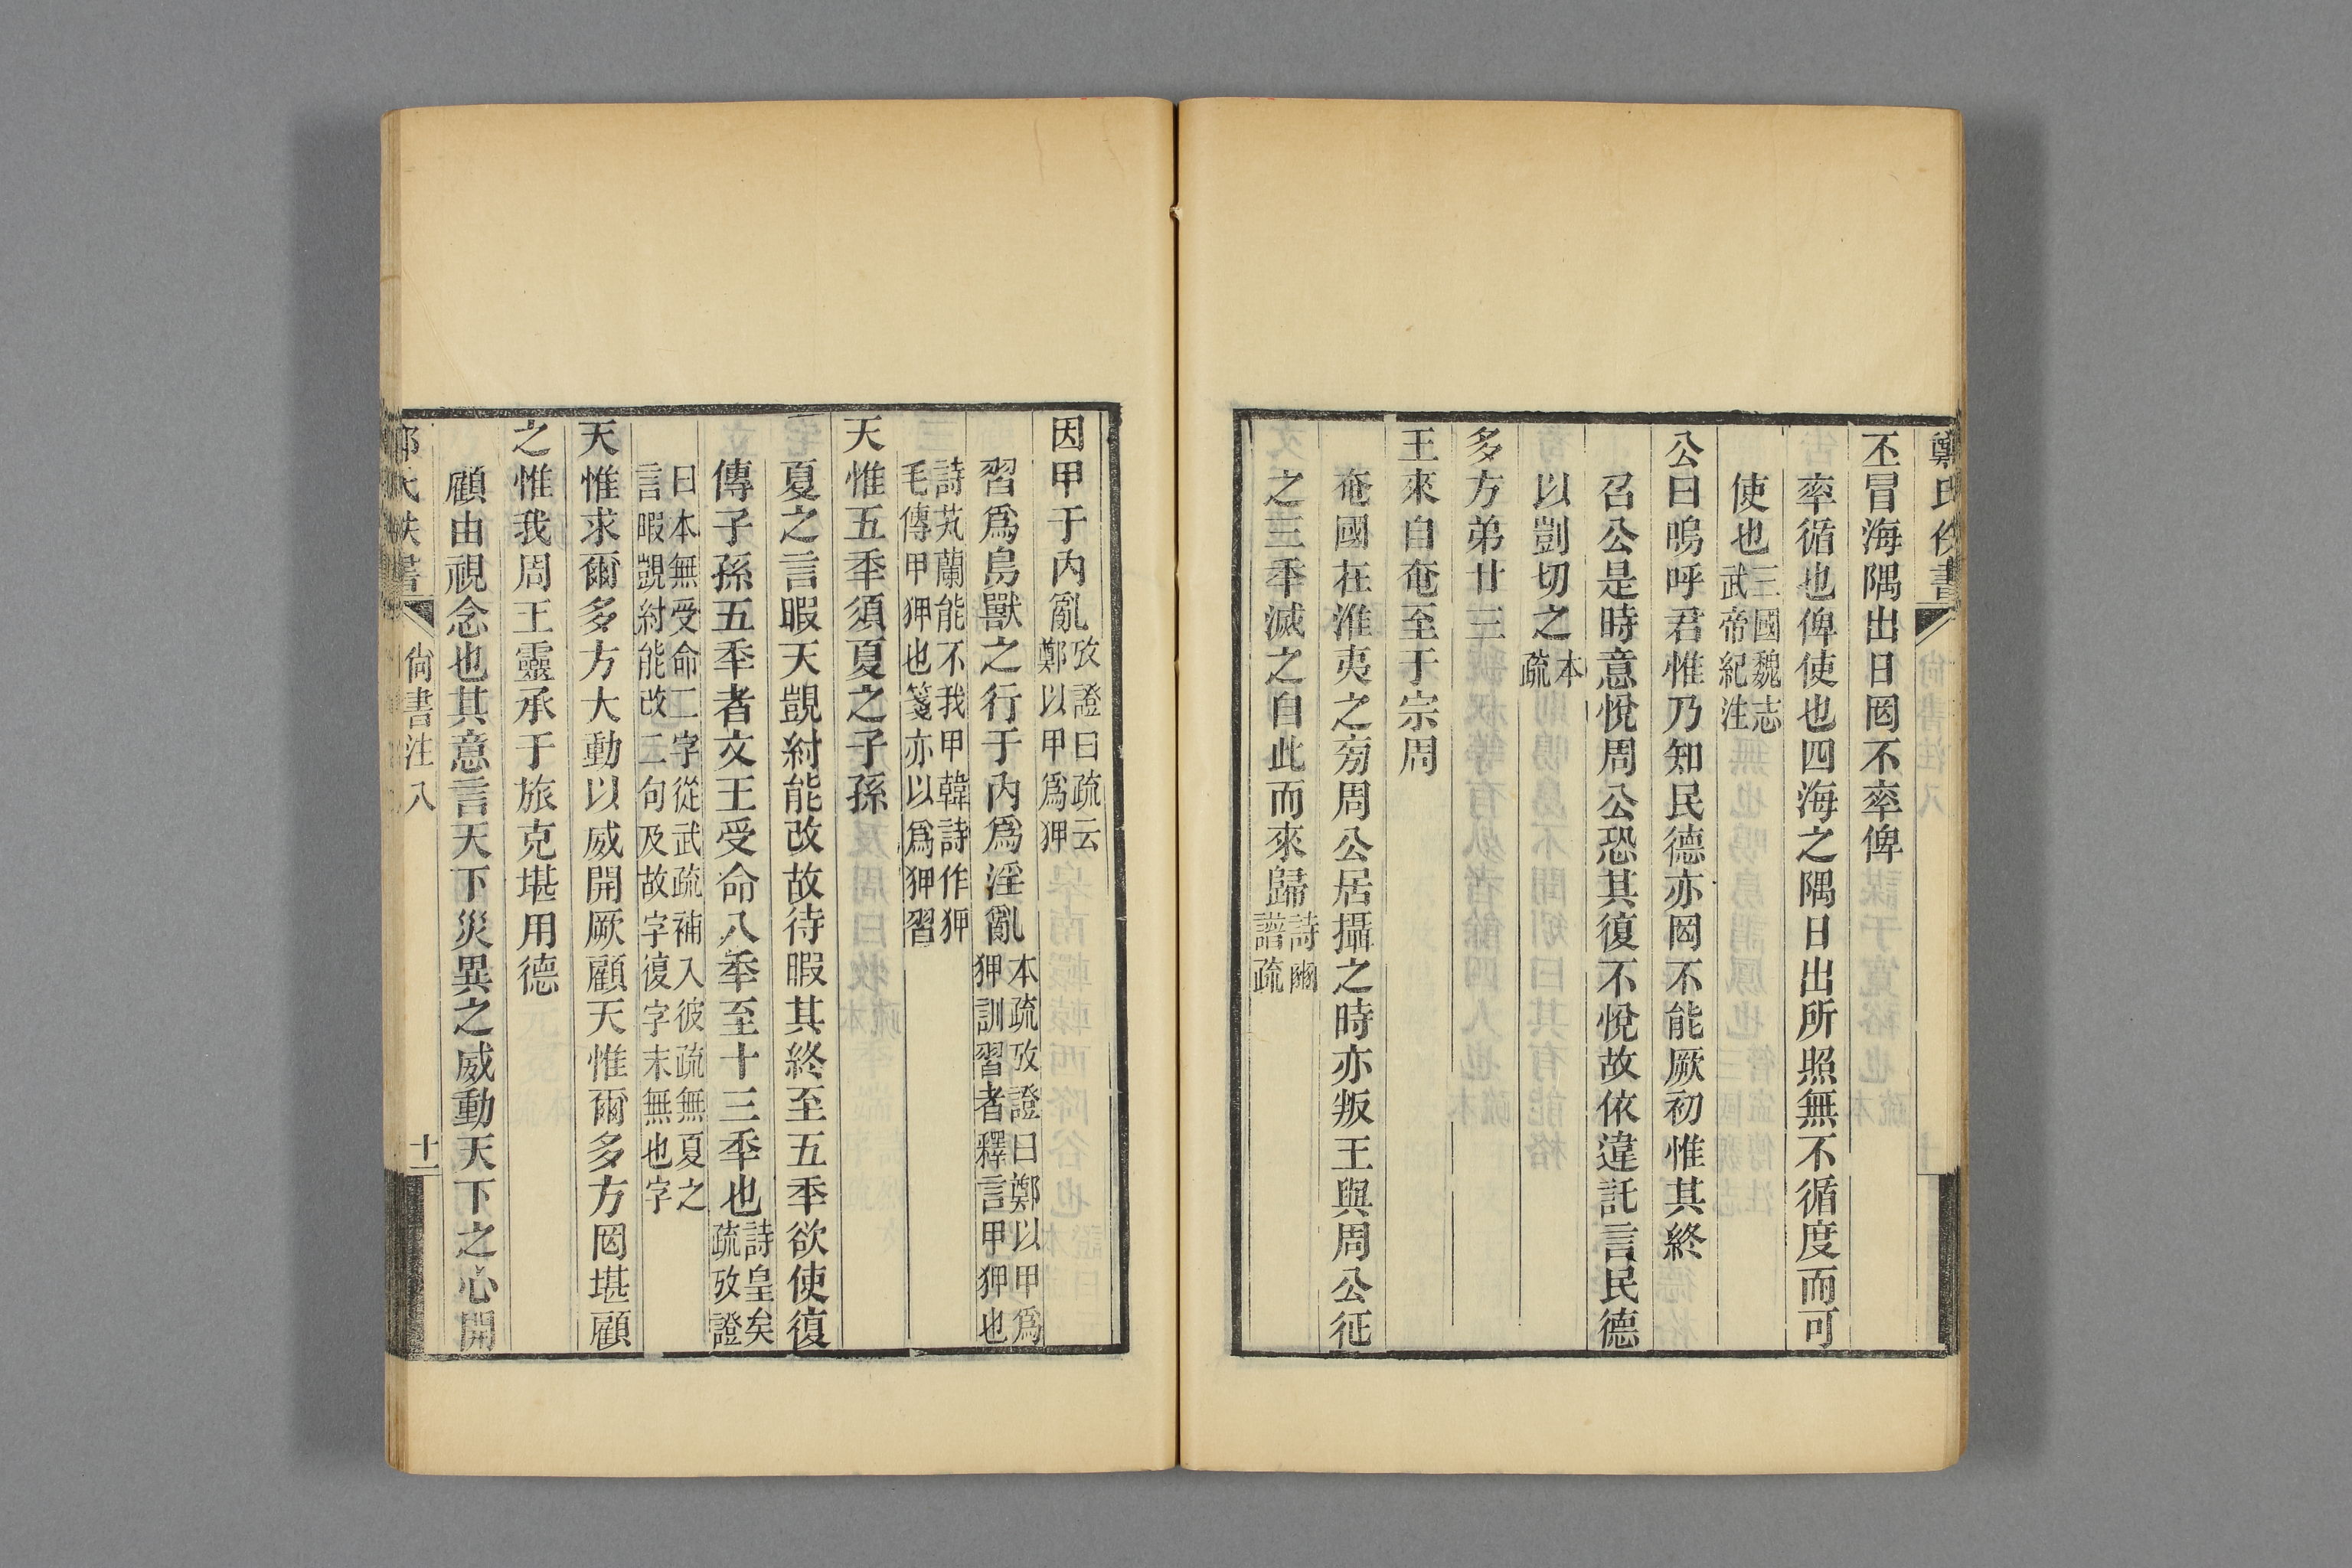 鄭氏佚書
丕冒海隅出日罔不率俾
率循也俾使也四海之隅日出所照無不循度而可
使也三國魏志武帝紀注
公曰嗚呼君惟乃知民德亦罔不能厥初惟其終
召公是時意悅周公恐其復不悅故依違託言民德
以剴切之本疏
多方弟廿三
王來自奄至于宗周
奄國在淮夷之旁周公居攝之時亦叛王與周公征
之三秊滅之自此而來歸詩豳譜疏
因甲于內亂攷證曰疏云鄭以甲爲狎
習爲鳥獸之行于內爲淫亂本疏攷證曰鄭以甲爲狎訓習者釋言甲狎也
詩芄蘭能不我甲韓詩作狎毛傳甲狎也箋亦以爲狎習
天惟五秊須夏之子孫
夏之言暇天覬紂能改故待暇其終至五秊欲使復
傳子孫五秊者文王受命八秊至十三秊也詩皇矣疏攷證
曰本無受命二字從武疏補入彼疏無夏之言暇覬紂能改二句及故字復字末無也字
天惟求爾多方大動以威開厥顧天惟爾多方罔堪顧
之惟我周王靈承于旅克堪用德
顧由視念也其意言天下災異之威動天下之心開
氏佚書
尙書注八
十一